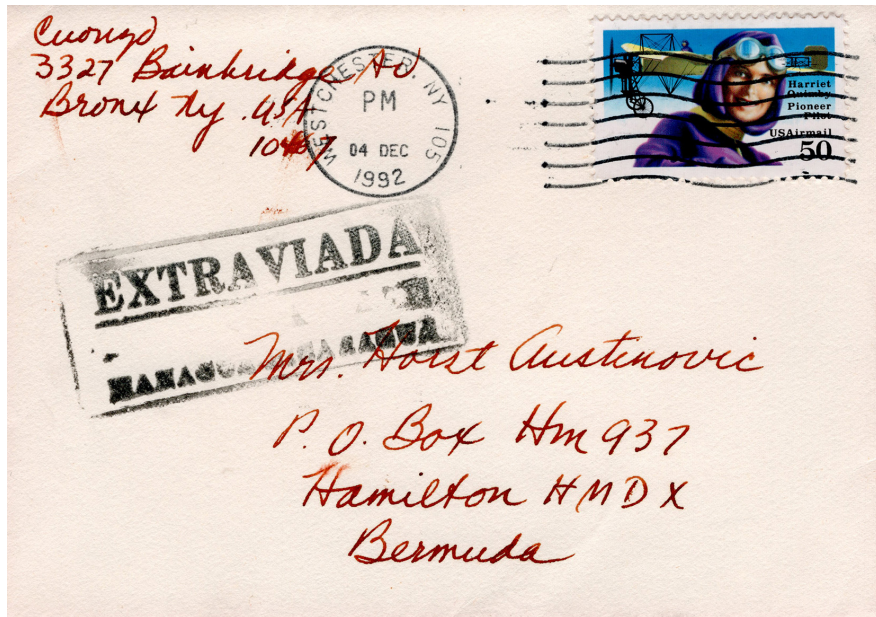 Cuongo
3327 Bainbridge Ad.
Bronx Ny. USA
10467
WESTCHESTER NY 105
PM
04 DEC
1992
Harriet
Quimby
Pioneer
Pilot
USAirmail
50
EXTRAVIADA
Mrs. Horst Austinovic
P. O. Box Hm 937
Hamilton HMDX
Bermuda